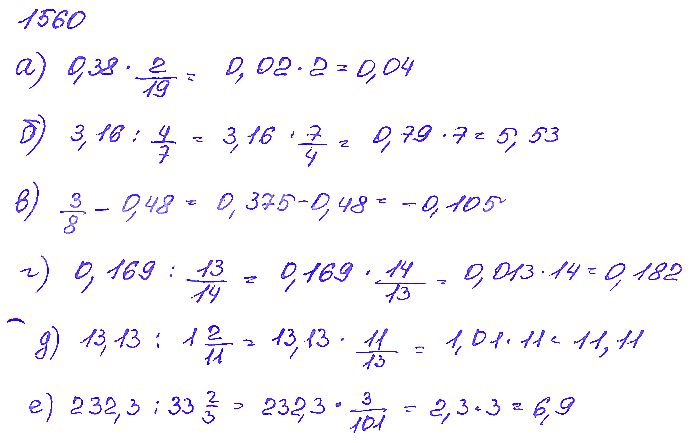 1560
а) 0,38 · 2/19 = 0,02 · 2 = 0,04
б) 3,16 : 4/7 = 3,16 · 7/4 = 0,79 · 7 = 5,53
в) 3/8 - 0,48 = 0,375 - 0,48 = -0,105
г) 0,169 : 13/14 = 0,169 · 14/13 = 0,013 · 14 = 0,182
д) 13,13 : 1 2/11 = 13,13 · 11/13 = 1,01 · 11 = 11,11
е) 232,3 : 33 2/3 = 232,3 · 3/101 = 2,3 · 3 = 6,9